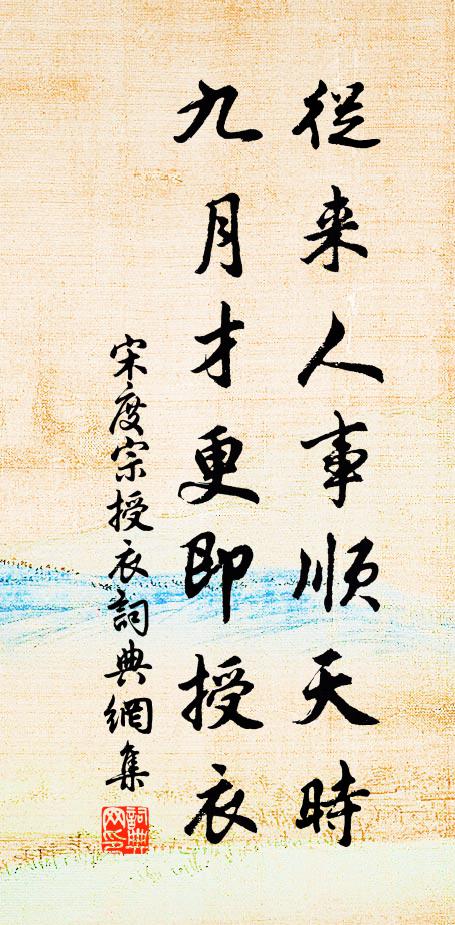 從来人事順天時
九月才更即授衣
宋度宗授衣詞典網集
詞典网印